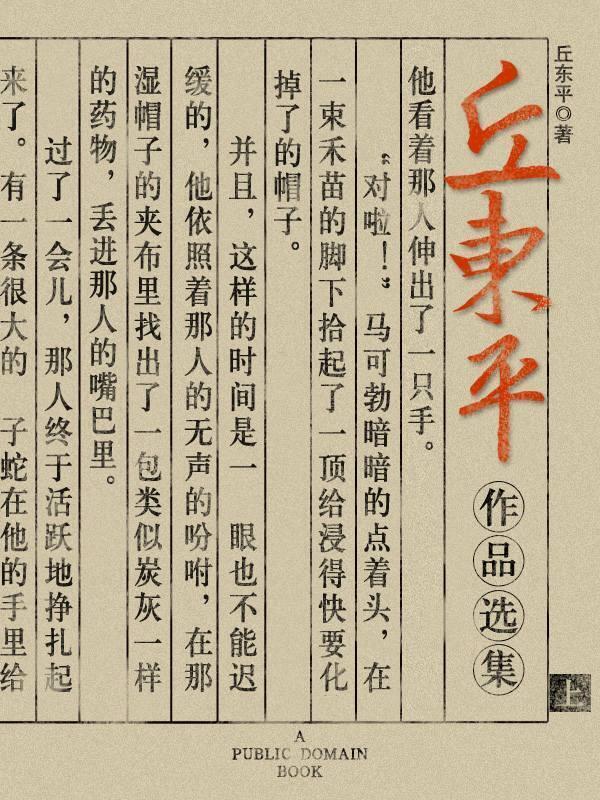 丘东平◎著
丘東平
作品选集
上
他看着那人伸出了一只手。
“对啦！”马可勃暗暗的点着头，在
一束禾苗的脚下拾起了一顶给浸得快要化
掉了的帽子。
并且，这样的时间是一 眼也不能迟
缓的，他依照着那人的无声的吩咐，在那
湿帽子的夹布里找出了一包类似炭灰一样
的药物，丢进那人的嘴巴里。
过了一会儿，那人终于活跃地挣扎起
来了。有一条很大的 子蛇在他的手里给
A
PUBLIC DOMAIN
BOOK